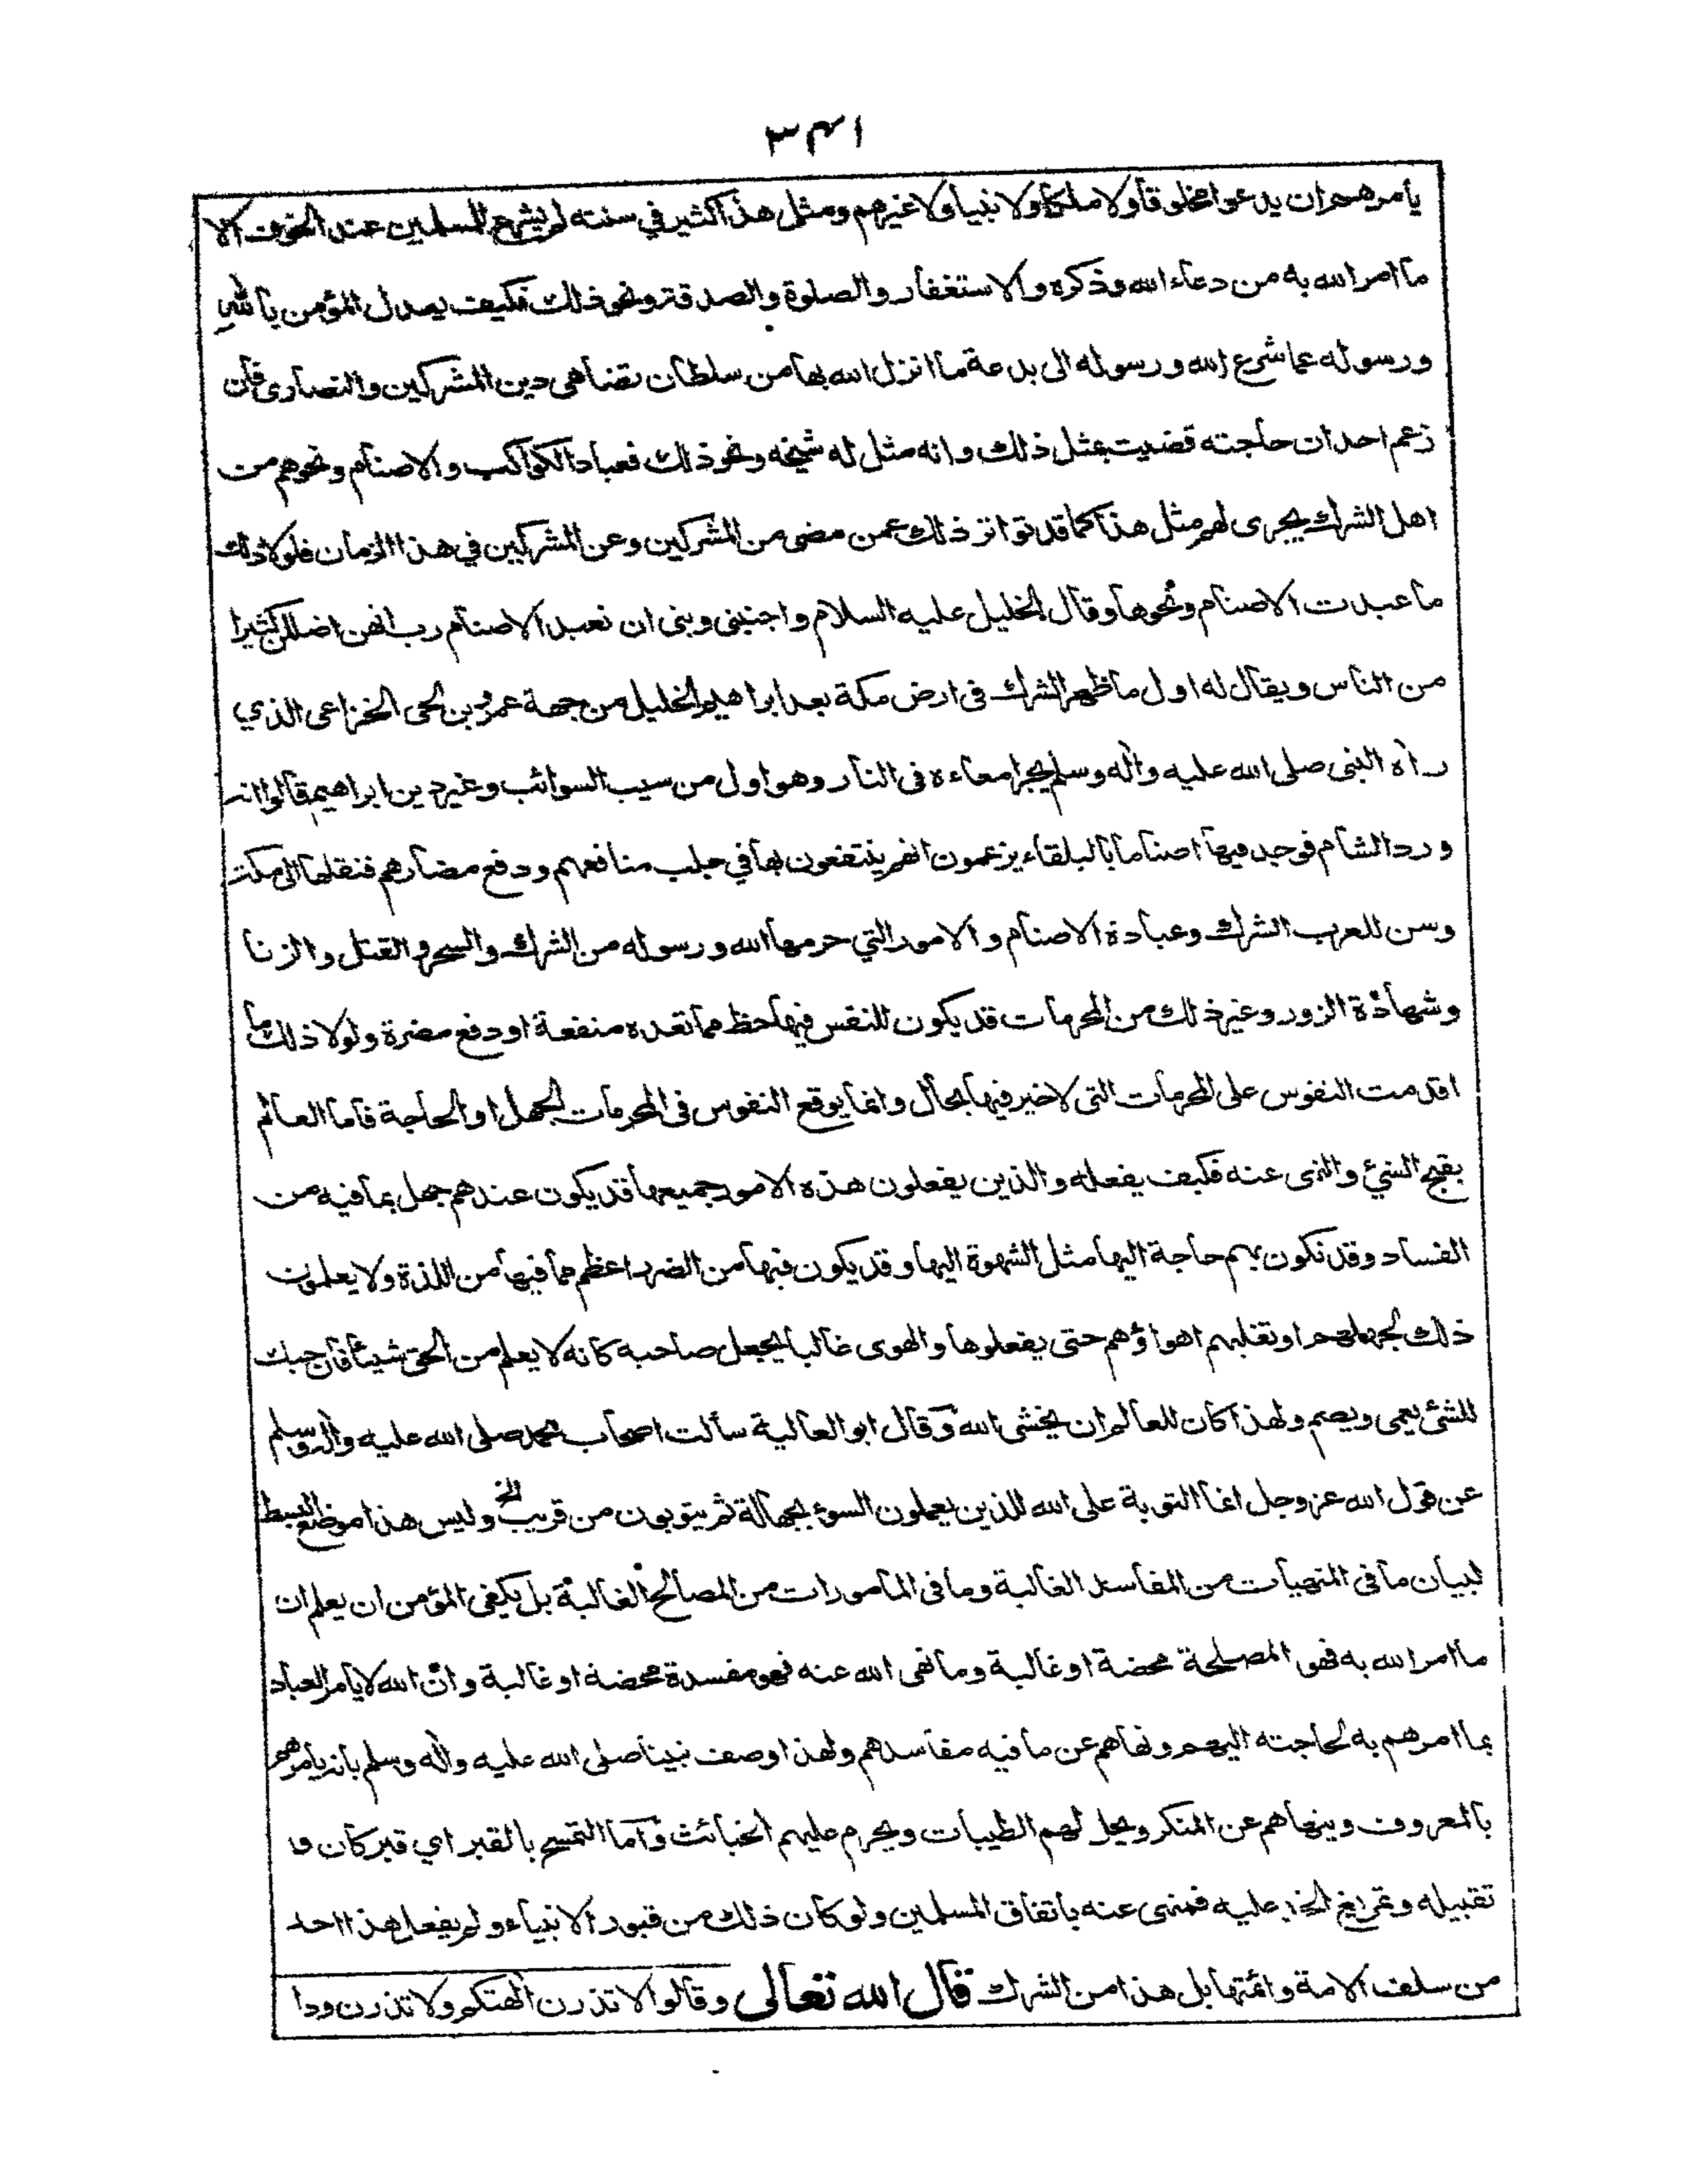 ٣٤١
يأمرهم ان يدعوا مخلوقا ولا ملكا ولا نبيا ولا غيرهم ومثل هذا كثير في سنته لم يشرع للمسلمين عند الخوف الا
ما امر الله به من دعاء الله وذكره والاستغفار والصلوة والصدقة ونحو ذلك فكيف يعدل المؤمن بالله
ورسوله عما شرع الله ورسوله الى بدعة ما انزل الله بها من سلطان تضاهى دين المشركين والنصارى فان
زعم احد ان حاجته قضيت بمثل ذلك وانه مثل له شيخه ونحو ذلك فعباد الكواكب والاصنام ونحوهم من
اهل الشرك يجرى لهم مثل هذا كما قد تواتر ذلك عمن مضى من المشركين وعن المشركين في هذا الزمان فلولا ذلك
ما عبدت الاصنام ونحوها وقال الخليل عليه السلام واجنبنى وبنى ان نعبد الاصنام رب انهن اضللن كثيرا
من الناس ويقال له اول ما ظهر الشرك فى ارض مكة بعد ابراهيم الخليل من جهة عمرو بن لحى الخزاعى الذي
رآه النبى صلى الله عليه وآله وسلم يجر امعاءه فى النار وهو اول من سيب السوائب وغير دين ابراهيم قالوا انه
ورد الشام فوجد فيها اصناما بالبلقاء يزعمون انهم ينتفعون بها في جلب منافعهم ودفع مضارهم فنقلها الى مكة
وسن للعرب الشرك وعبادة الاصنام والامور التي حرمها الله ورسوله من الشرك والسحر والقتل والزنا
وشهادة الزور وغير ذلك من المحرمات قد يكون للنفس فيها حظ مما تعده منفعة او دفع مضرة ولولا ذلك ما
اقدمت النفوس على المحرمات التى لا خير فيها بحال وانما يوقع النفوس فى المحرمات الجهل او الحاجة فاما العالم
بقبح الشئ والنهى عنه فكيف يفعله والذين يفعلون هذه الامور جميعها قد يكون عندهم جهل بما فيه من
الفساد وقد تكون بهم حاجة اليها مثل الشهوة اليها وقد يكون فيها من الضرر اعظم مما فيها من اللذة ولا يعلمون
ذلك لجهلهم او تغلبهم اهواؤهم حتى يفعلوها والهوى غالبا يجعل صاحبه كانه لا يعلم من الحق شيئا فان حبك
للشئ يعمى ويصم ولهذا كان للعالم ان يخشى الله وقال ابو العالية سألت اصحاب محمد صلى الله عليه وآله وسلم
عن قول الله عز وجل انما التوبة على الله للذين يعملون السوء بجهالة ثم يتوبون من قريب الخ وليس هذا موضع البسط
لبيان ما فى المنهيات من المفاسد الغالبة وما فى المامورات من المصالح الغالبة بل يكفى المؤمن ان يعلم ان
ما امر الله به فهو المصلحة محضة او غالبة وما نهى الله عنه فهو مفسدة محضة او غالبة وان الله لا يامر العباد
بما امرهم به لحاجته اليهم ونهاهم عن ما فيه مفاسدهم ولهذا وصف نبينا صلى الله عليه وآله وسلم بانه يامرهم
بالمعروف وينهاهم عن المنكر ويحل لهم الطيبات ويحرم عليهم الخبائث واما التمسح بالقبر اي قبر كان و
تقبيله وتمريغ الخد عليه فمنهى عنه باتفاق المسلمين ولو كان ذلك من قبور الانبياء ولم يفعل هذا احد
من سلف الامة وائمتها بل هذا من الشرك قال الله تعالى وقالوا لا تذرن الهتكم ولا تذرن ودا